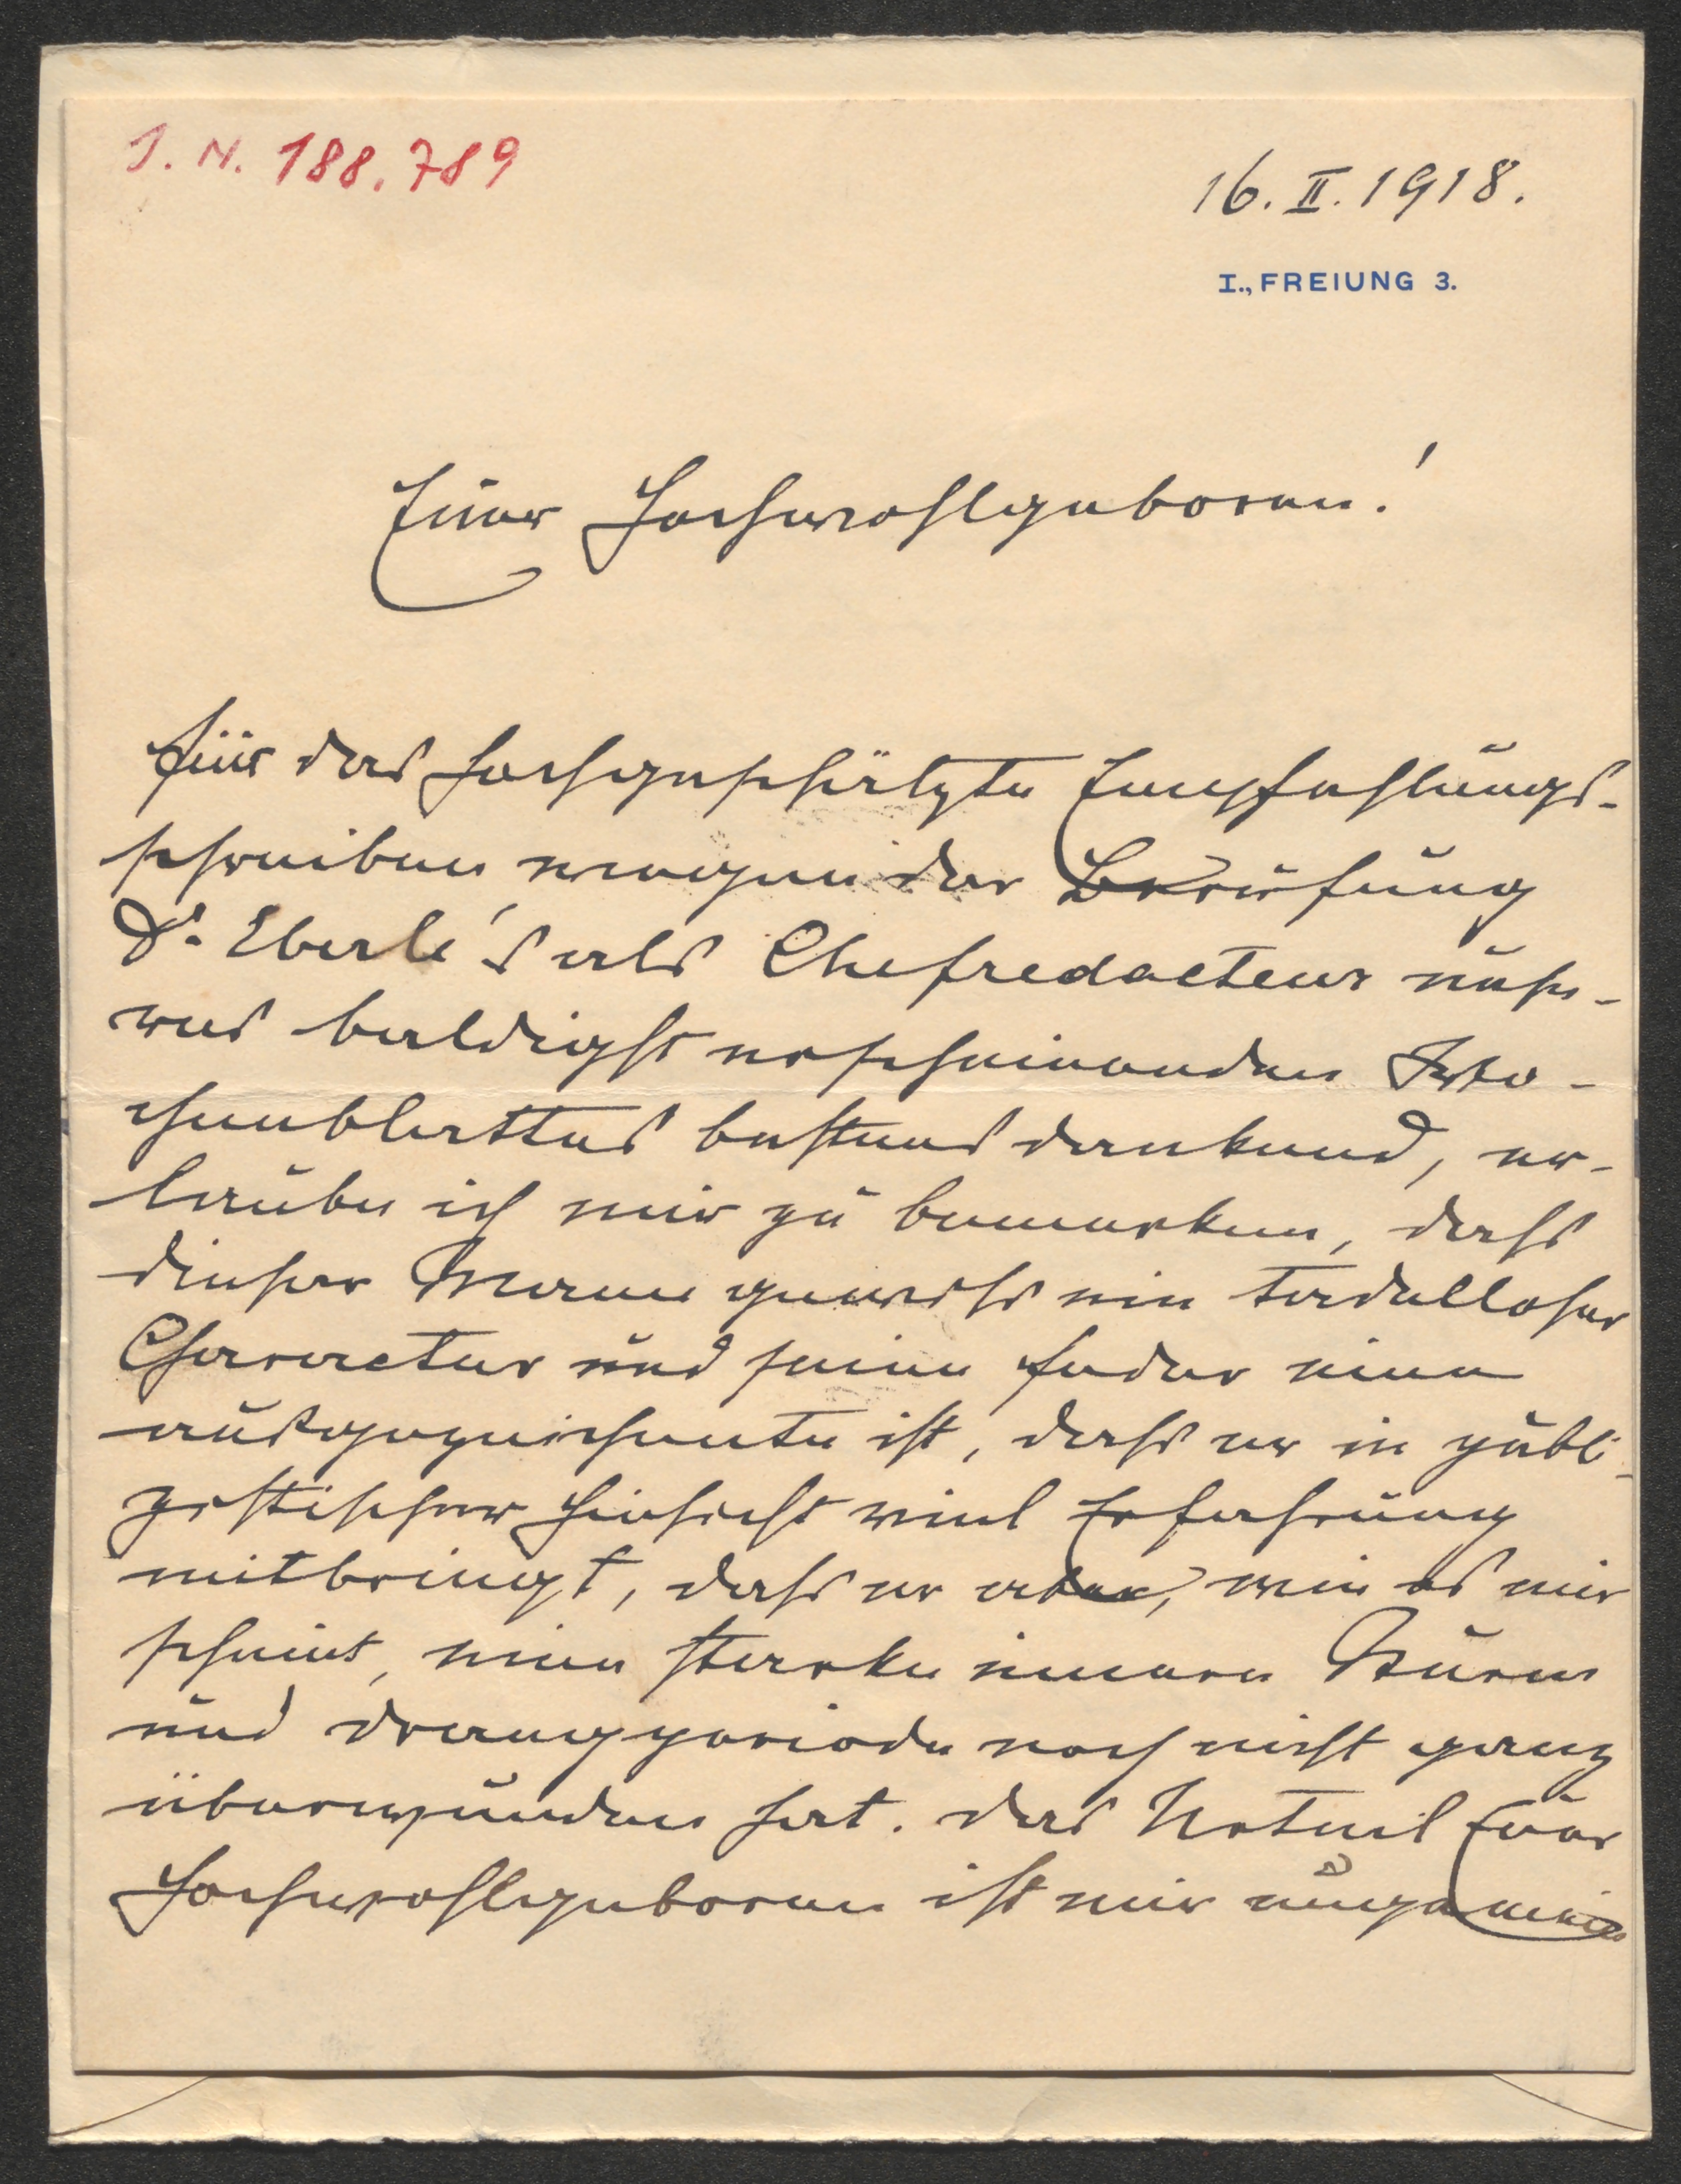 J. N. 188.789
16. II. 1918.
I., FREIUNG 3.
Euer Hochwohlgeboren!
Für das hochgeschätzte Empfehlungs-
schreiben wegen der Berufung
Dr. Eberle's als Chefredacteur unse-
res baldigst erscheinenden Wo-
chenblattes bestens dankend, er-
laube ich mir zu bemerken, dass
dieser Mann gewiss ein tadelloser
Character und seine Feder eine
ausgezeichnete ist, dass er in publi-
zistischer Hinsicht viel Erfahrung
mitbringt, dass er aber, wie es mir
scheint, eine starke innere Sturm
und Drangperiode noch nicht ganz
überwunden hat. Das Urteil Euer
Hochwohlgeboren ist mir ungemein